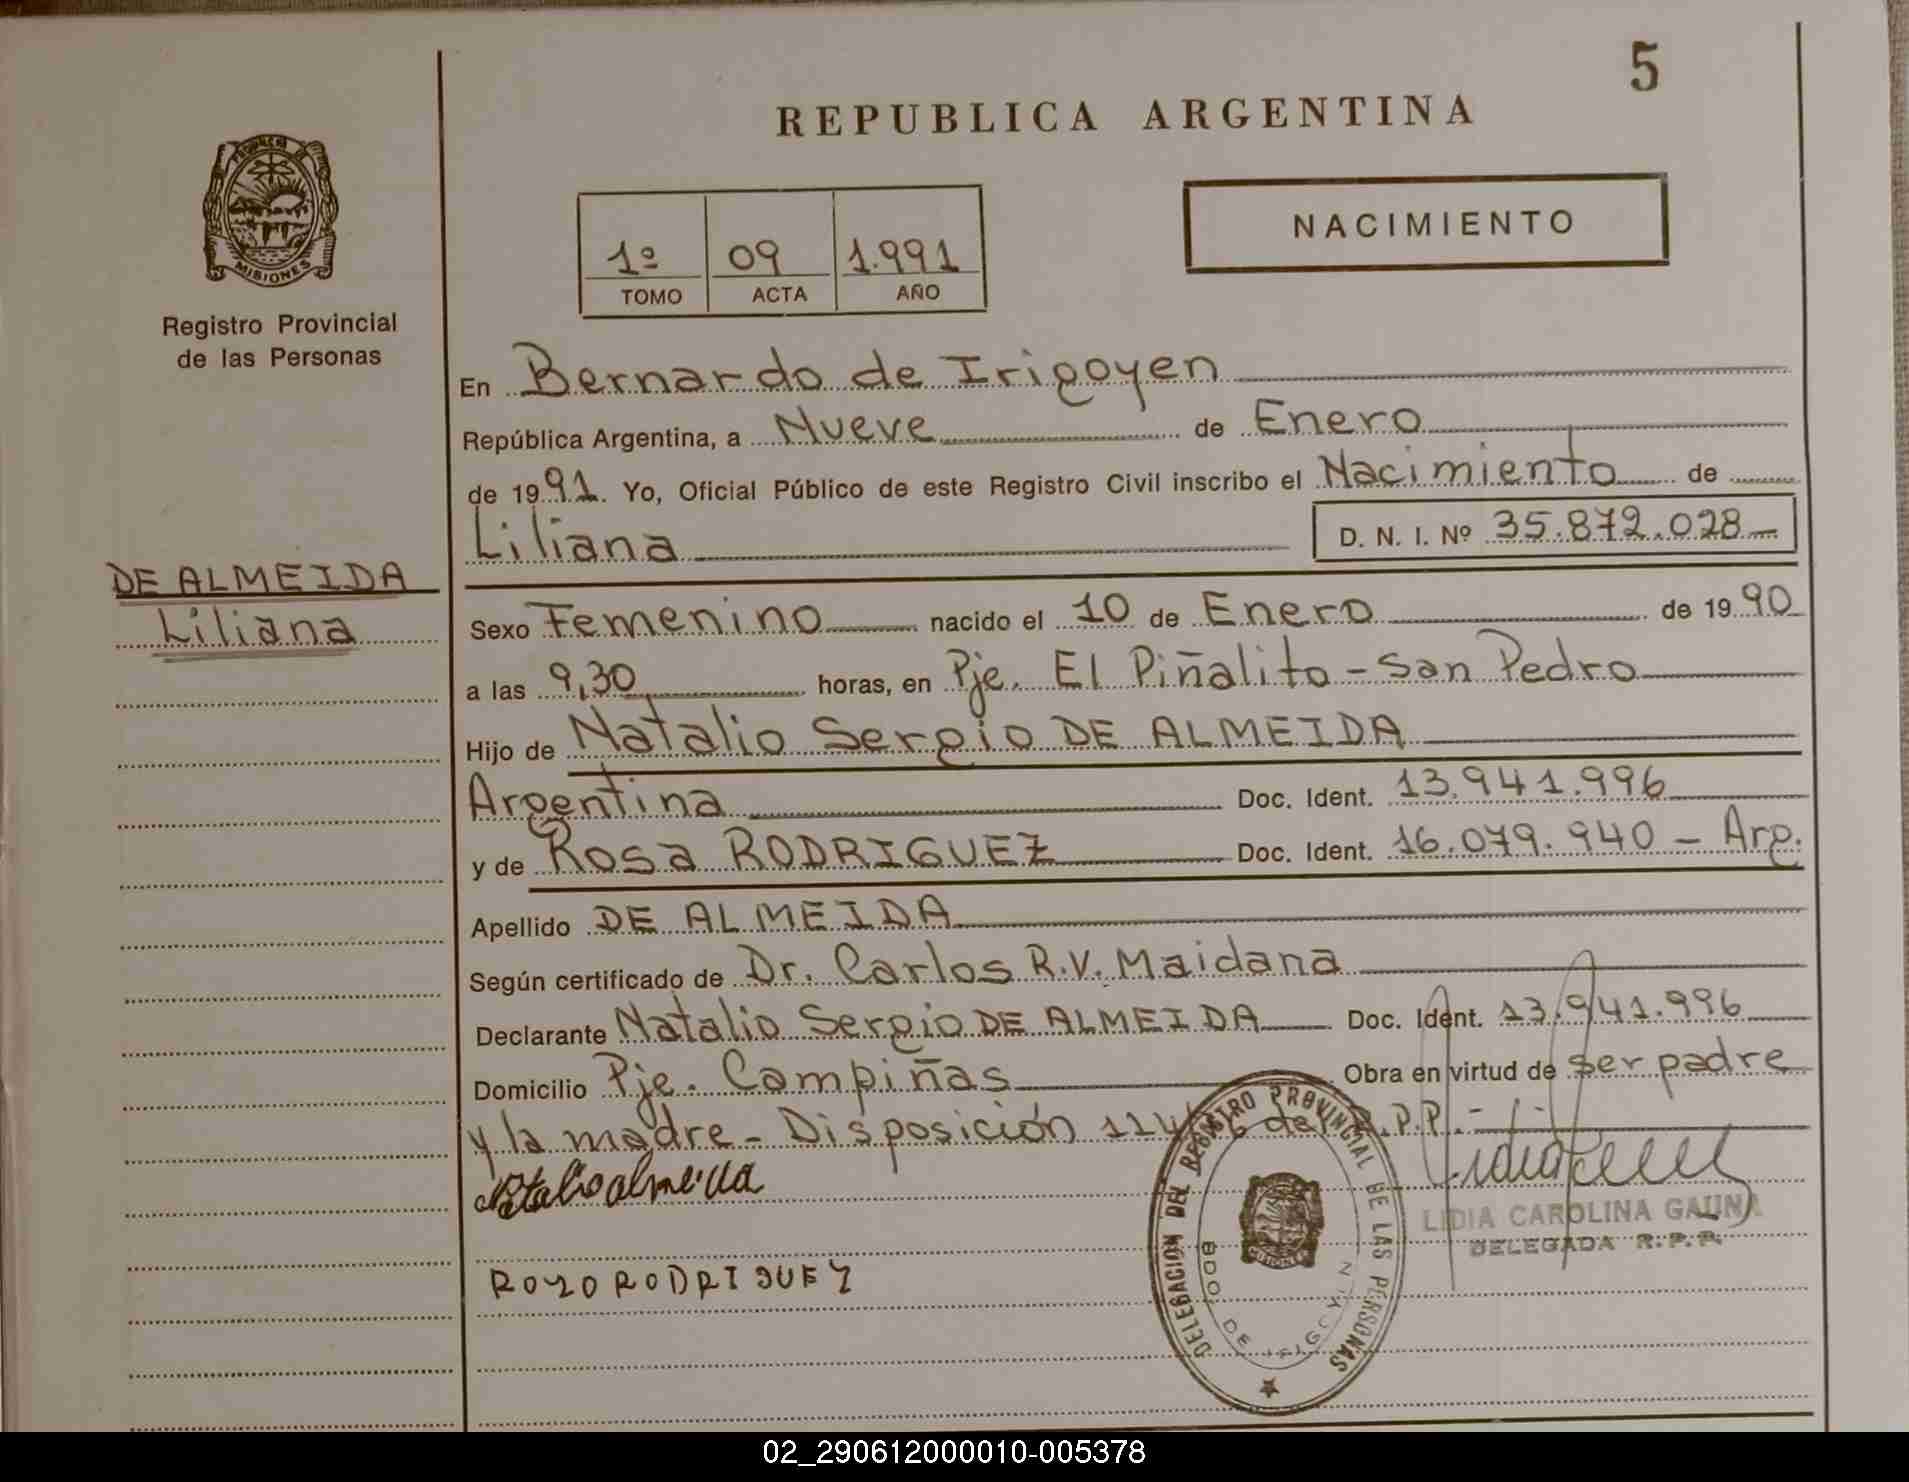 5
REPUBLICA ARGENTINA
PROVINCIA DE
MISIONES
Registro Provincial
de las Personas
1º 09 1.991
TOMO ACTA AÑO
NACIMIENTO
En Bernardo de Irigoyen
República Argentina, a Nueve de Enero
de 1991. Yo, Oficial Público de este Registro Civil inscribo el Nacimiento de
Liliana D. N. I. Nº 35.872.028
DE ALMEIDA
Liliana
Sexo Femenino nacido el 10 de Enero de 1990
a las 9,30 horas, en Pje. El Piñalito - San Pedro
Hijo de Natalio Sergio DE ALMEIDA
Argentina Doc. Ident. 13.941.996
y de Rosa RODRIGUEZ Doc. Ident. 16.079.940 - Arg.
Apellido DE ALMEIDA
Según certificado de Dr. Carlos R.V. Maidana
Declarante Natalio Sergio DE ALMEIDA Doc. Ident. 13.941.996
Domicilio Pje. Campiñas Obra en virtud de ser padre
y la madre - Disposición de R.P.P.-
Natalio almeida
LIDIA CAROLINA GAUNA
DELEGADA R.P.P.
ROZO RODRIGUEZ
DELEGACION DEL REGISTRO PROVINCIAL DE LAS PERSONAS
BDO. DE IRIGOYEN
MISIONES
02_290612000010-005378